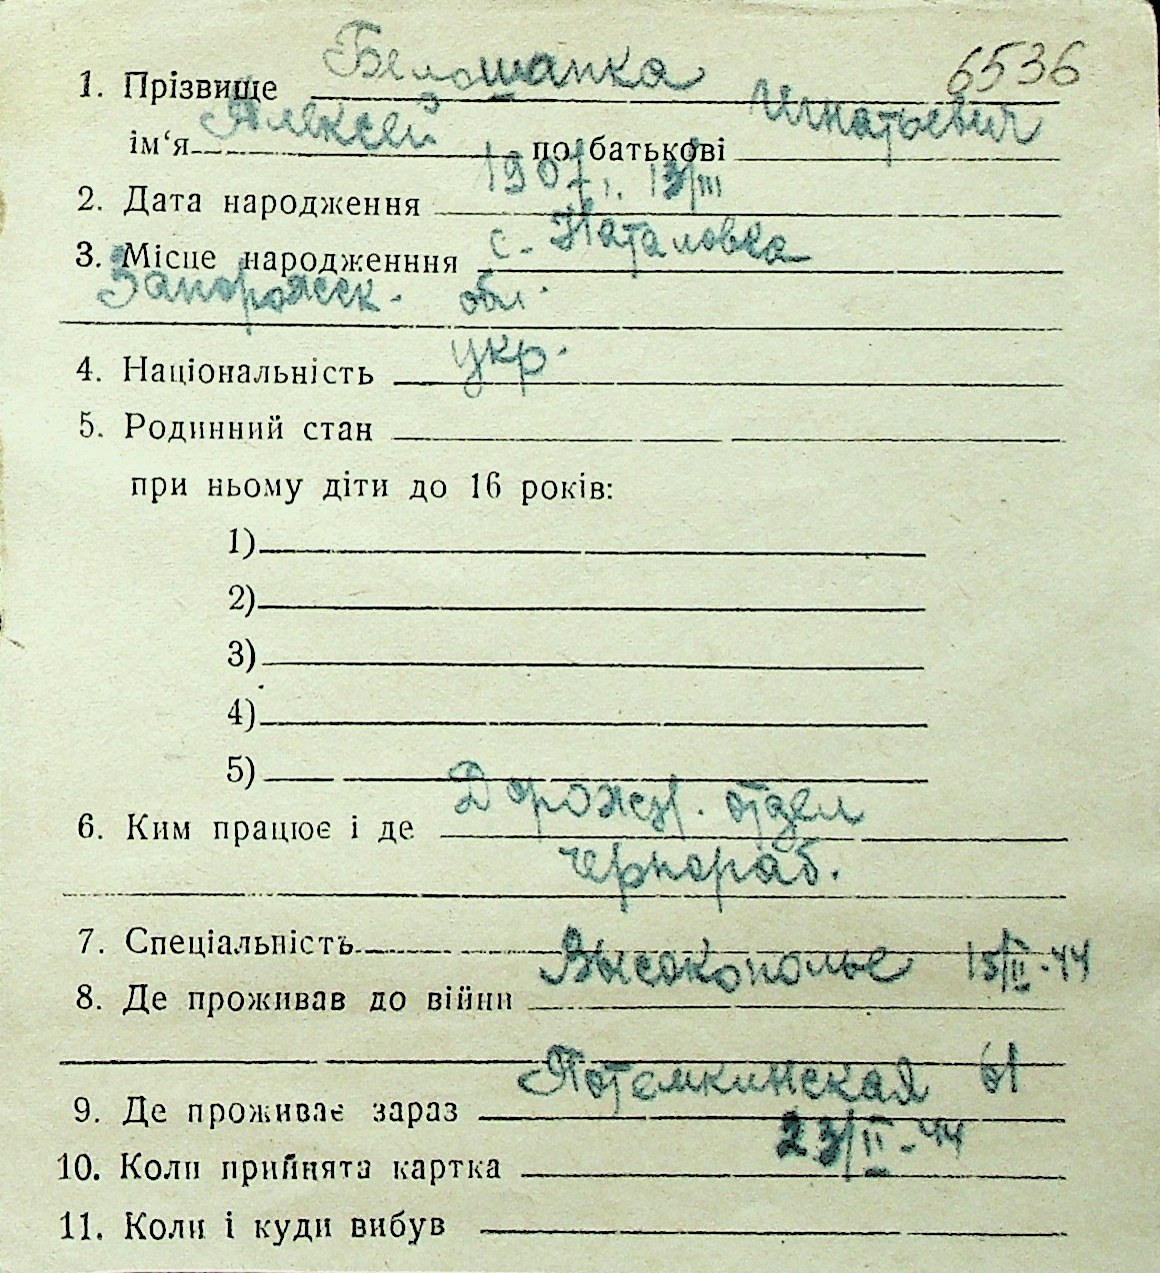 6536
1. Прізвище Белошапка
ім‘я Алексей по батькові Игнатьевич
2. Дата народження 1907 г. 13/III
3. Місце народженння с. Наталовка
Запорожск. обл.
4. Національність укр.
5. Родинний стан
при ньому діти до 16 років:
1)
2)
3)
4)
5)
6. Ким працює і де Дорожн. отдел
чернораб.
7. Спеціальність
8. Де проживав до війни Высокополье 15/II-44
9. Де проживає зараз Потемкинская 61
10. Коли прийнята картка 23/II-44
11. Коли і куди вибув